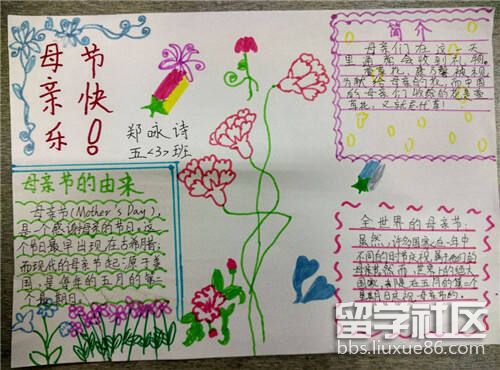 母亲节快乐!
郑咏诗
五<3>班
简介
母亲们在这一天
里通常会收到礼物,
康乃馨被视
为献给母亲的花,而中国
的母亲花是萱
草花,又叫忘忧草!
母亲节的由来
母亲节(Mother's Day),
是个感谢母亲的节日,这
个节日最早出现在古希腊;
而现代的母亲节起源于美
国,是每年的五月的第二
个星期日。
全世界的母亲节,
虽然,许多国家在一年中
不同的日子庆祝属于他们的
母亲节,然而,世界上的绝大
国家,都是在五月的第二个
星期日庆祝母亲节的。
留学社区
bbs.liuxue86.com